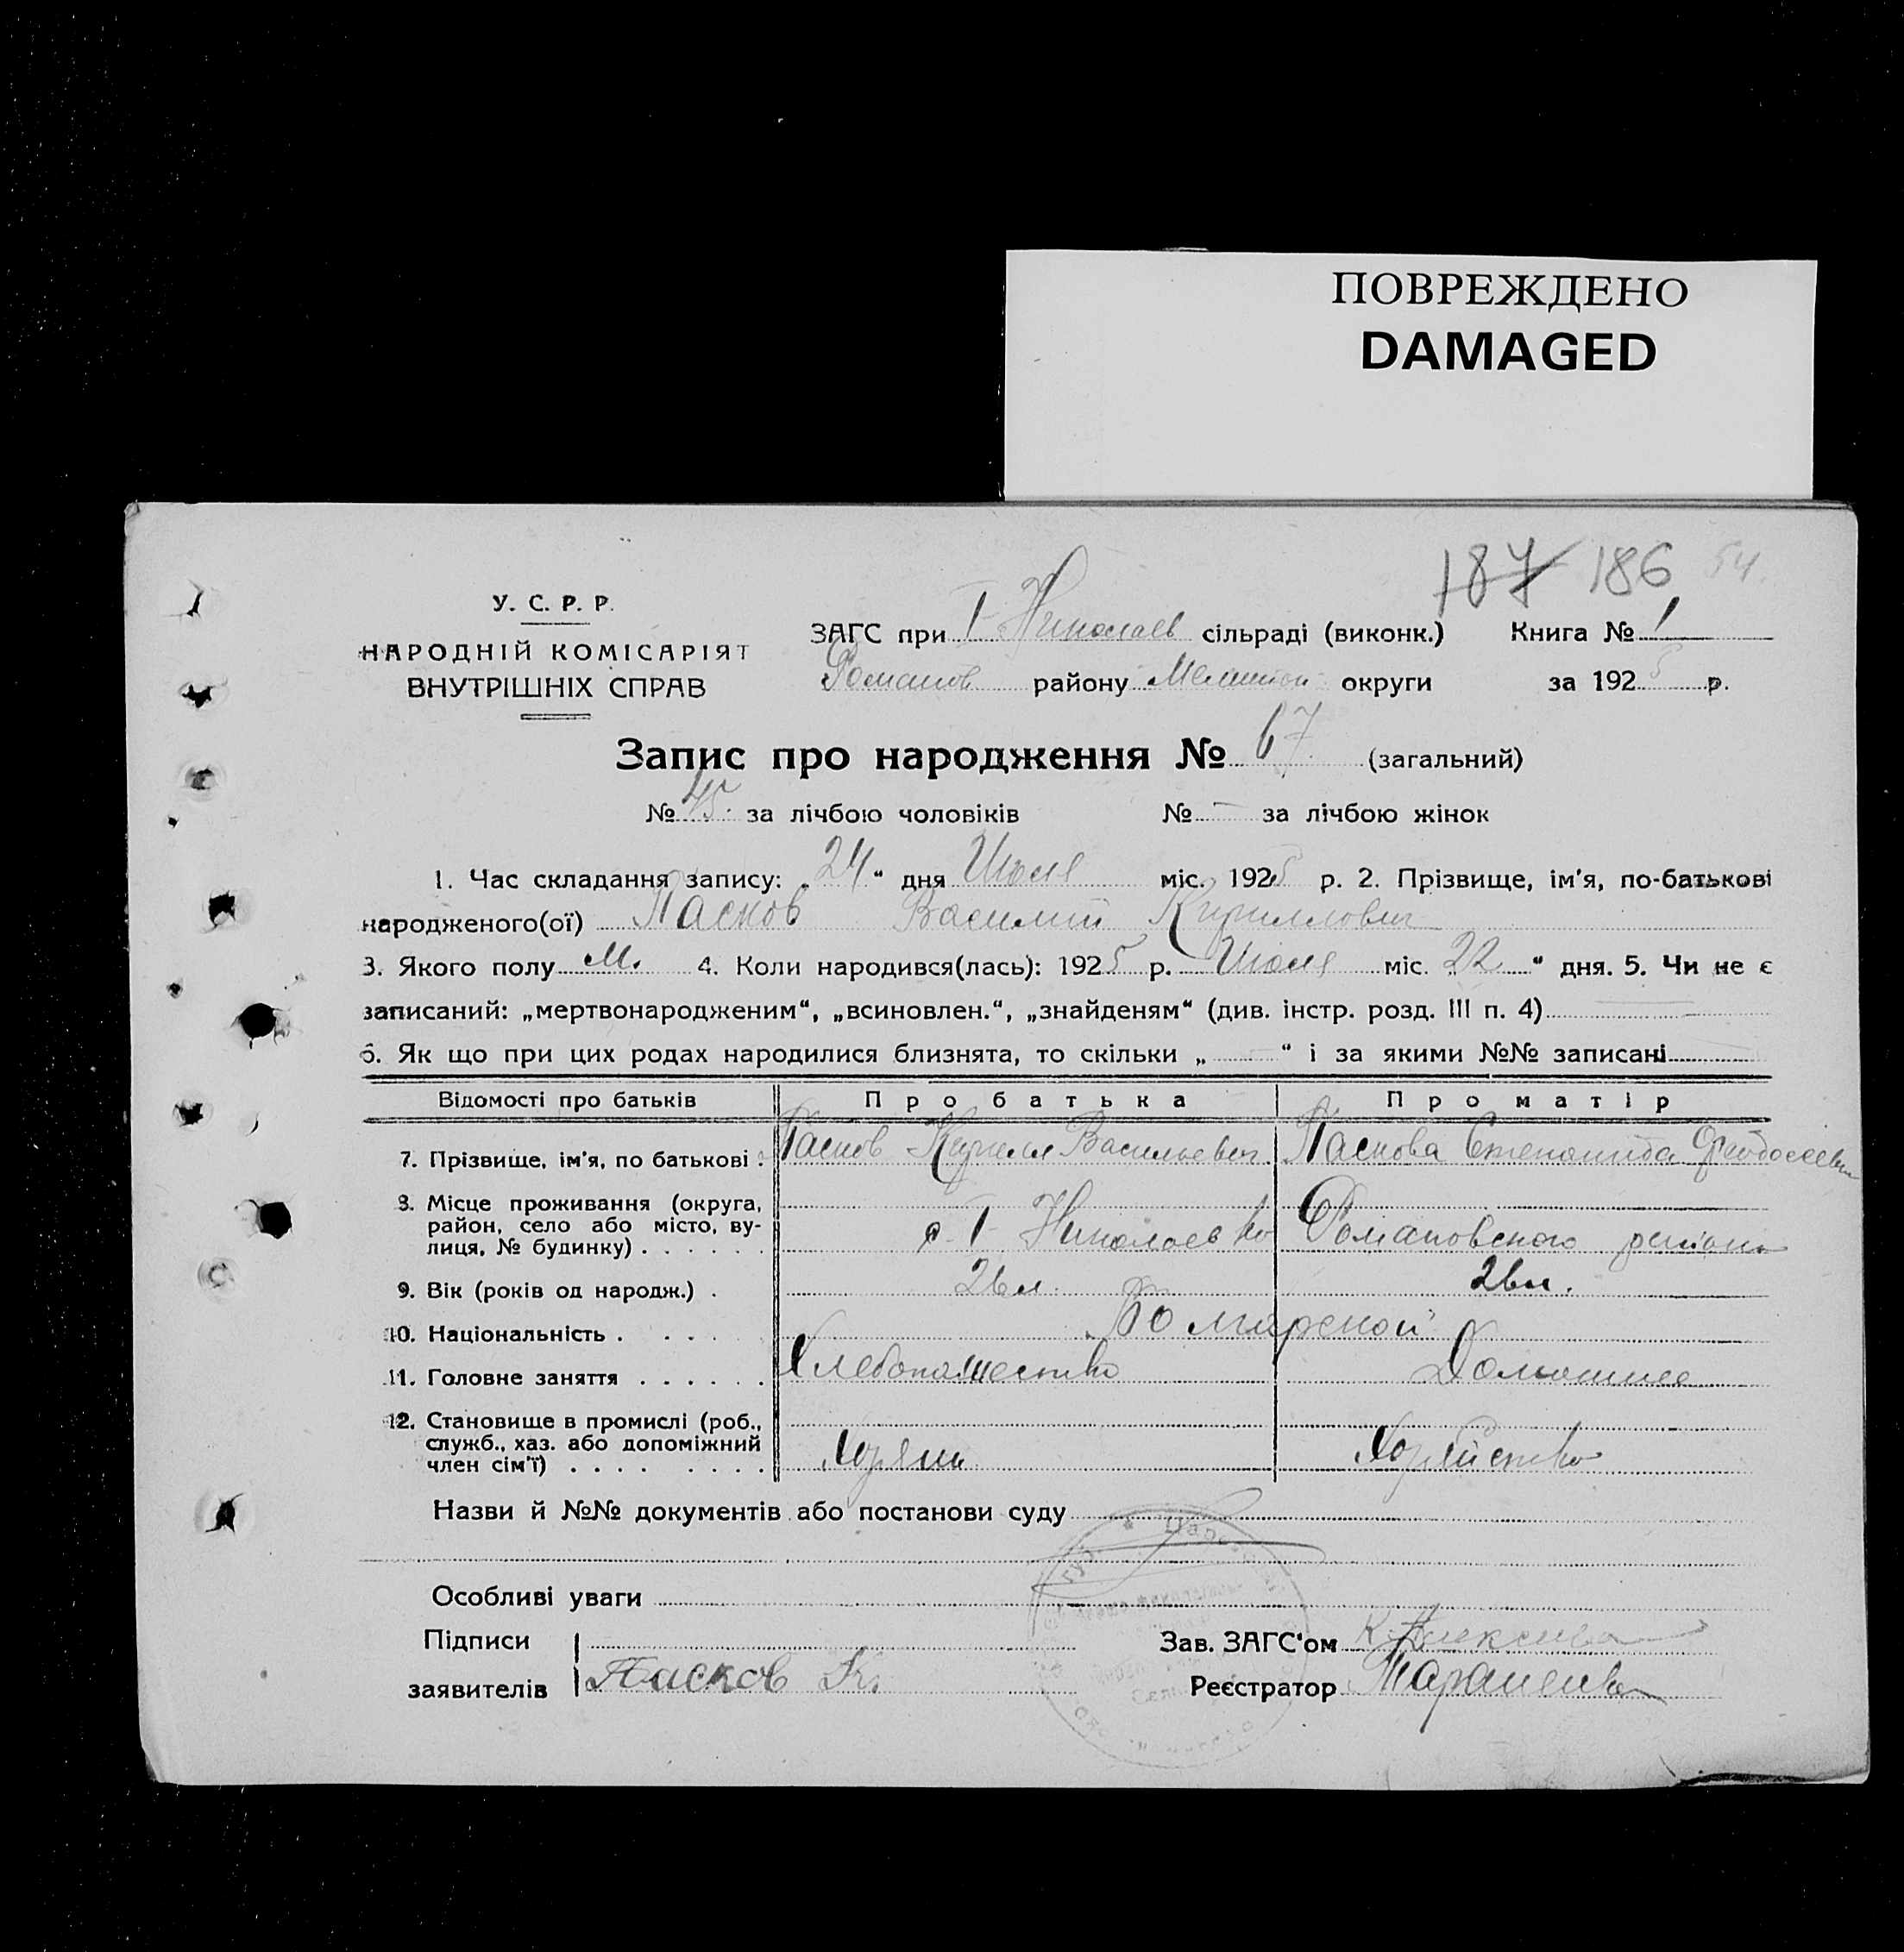 ПОВРЕЖДЕНО
DAMAGED
187 186 54.
У. С. Р. Р.
НАРОДНІЙ КОМІСАРІЯТ
ВНУТРІШНІХ СПРАВ
ЗАГС при I Николаев сільраді (виконк.) Книга № 1
Романов району Мелитоп округи за 1925 р.
Запис про народження № 67 (загальний)
№ 45. за лічбою чоловіків № — за лічбою жінок
1. Час складання запису: „24“ дня Июля міс. 1925 р. 2. Прізвище, ім'я, по-батькові
народженого(ої) Пасков Василий Кириллович
3. Якого полу м. 4. Коли народився(лась): 1925 р. Июля міс. „22“ дня. 5. Чи не є
записаний: „мертвонародженим“, „всиновлен.“, „знайденям“ (див. інстр. розд. III п. 4)
6. Як що при цих родах народилися близнята, то скільки „ — “ і за якими №№ записані
Відомості про батьків Про батька Про матір
7. Прізвище, ім'я, по батькові : Пасков Кирилл Васильевич Паскова Степанида Феодосеевн
8. Місце проживання (округа,
район, село або місто, ву-
лиця, № будинку) . . . . . . с. I Николаевка Романовского района
9. Вік (років од народж.) . 26 л. 26 л.
10. Національність . . . . . Болгарской
11. Головне заняття . . . . . . Хлебопашество Домашнее
12. Становище в промислі (роб.,
служб., хаз. або допоміжний
член сім'ї) . . . . . . . . Хозяин Хозяйство
Назви й №№ документів або постанови суду
Особливі уваги
Підписи
заявителів Пасков К.
Зав. ЗАГС'ом
Реєстратор